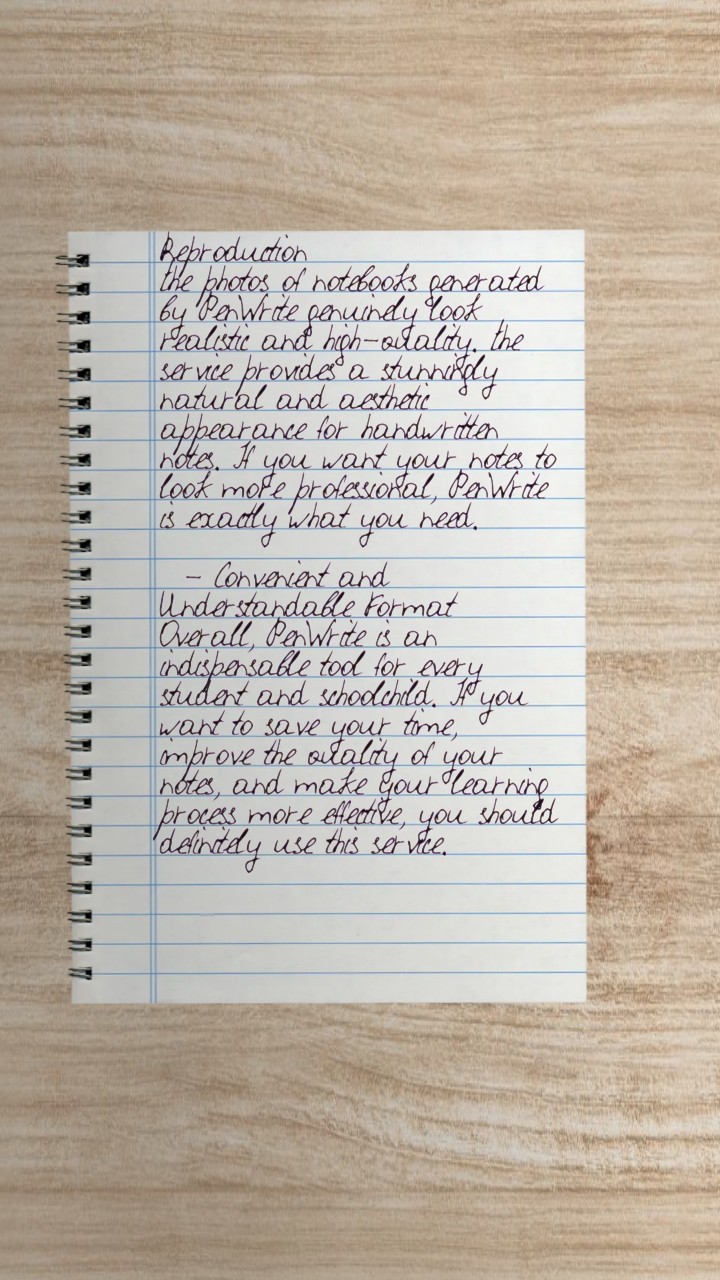 Reproduction
the photos of notebooks generated
by PenWrite genuinely look
realistic and high-quality. the
service provides a stunningly
natural and aesthetic
appearance for handwritten
notes. If you want your notes to
look more professional, PenWrite
is exactly what you need.
- Convenient and
Understandable Format
Overall, PenWrite is an
indispensable tool for every
student and schoolchild. If you
want to save your time,
improve the quality of your
notes, and make your learning
process more effective, you should
definitely use this service.